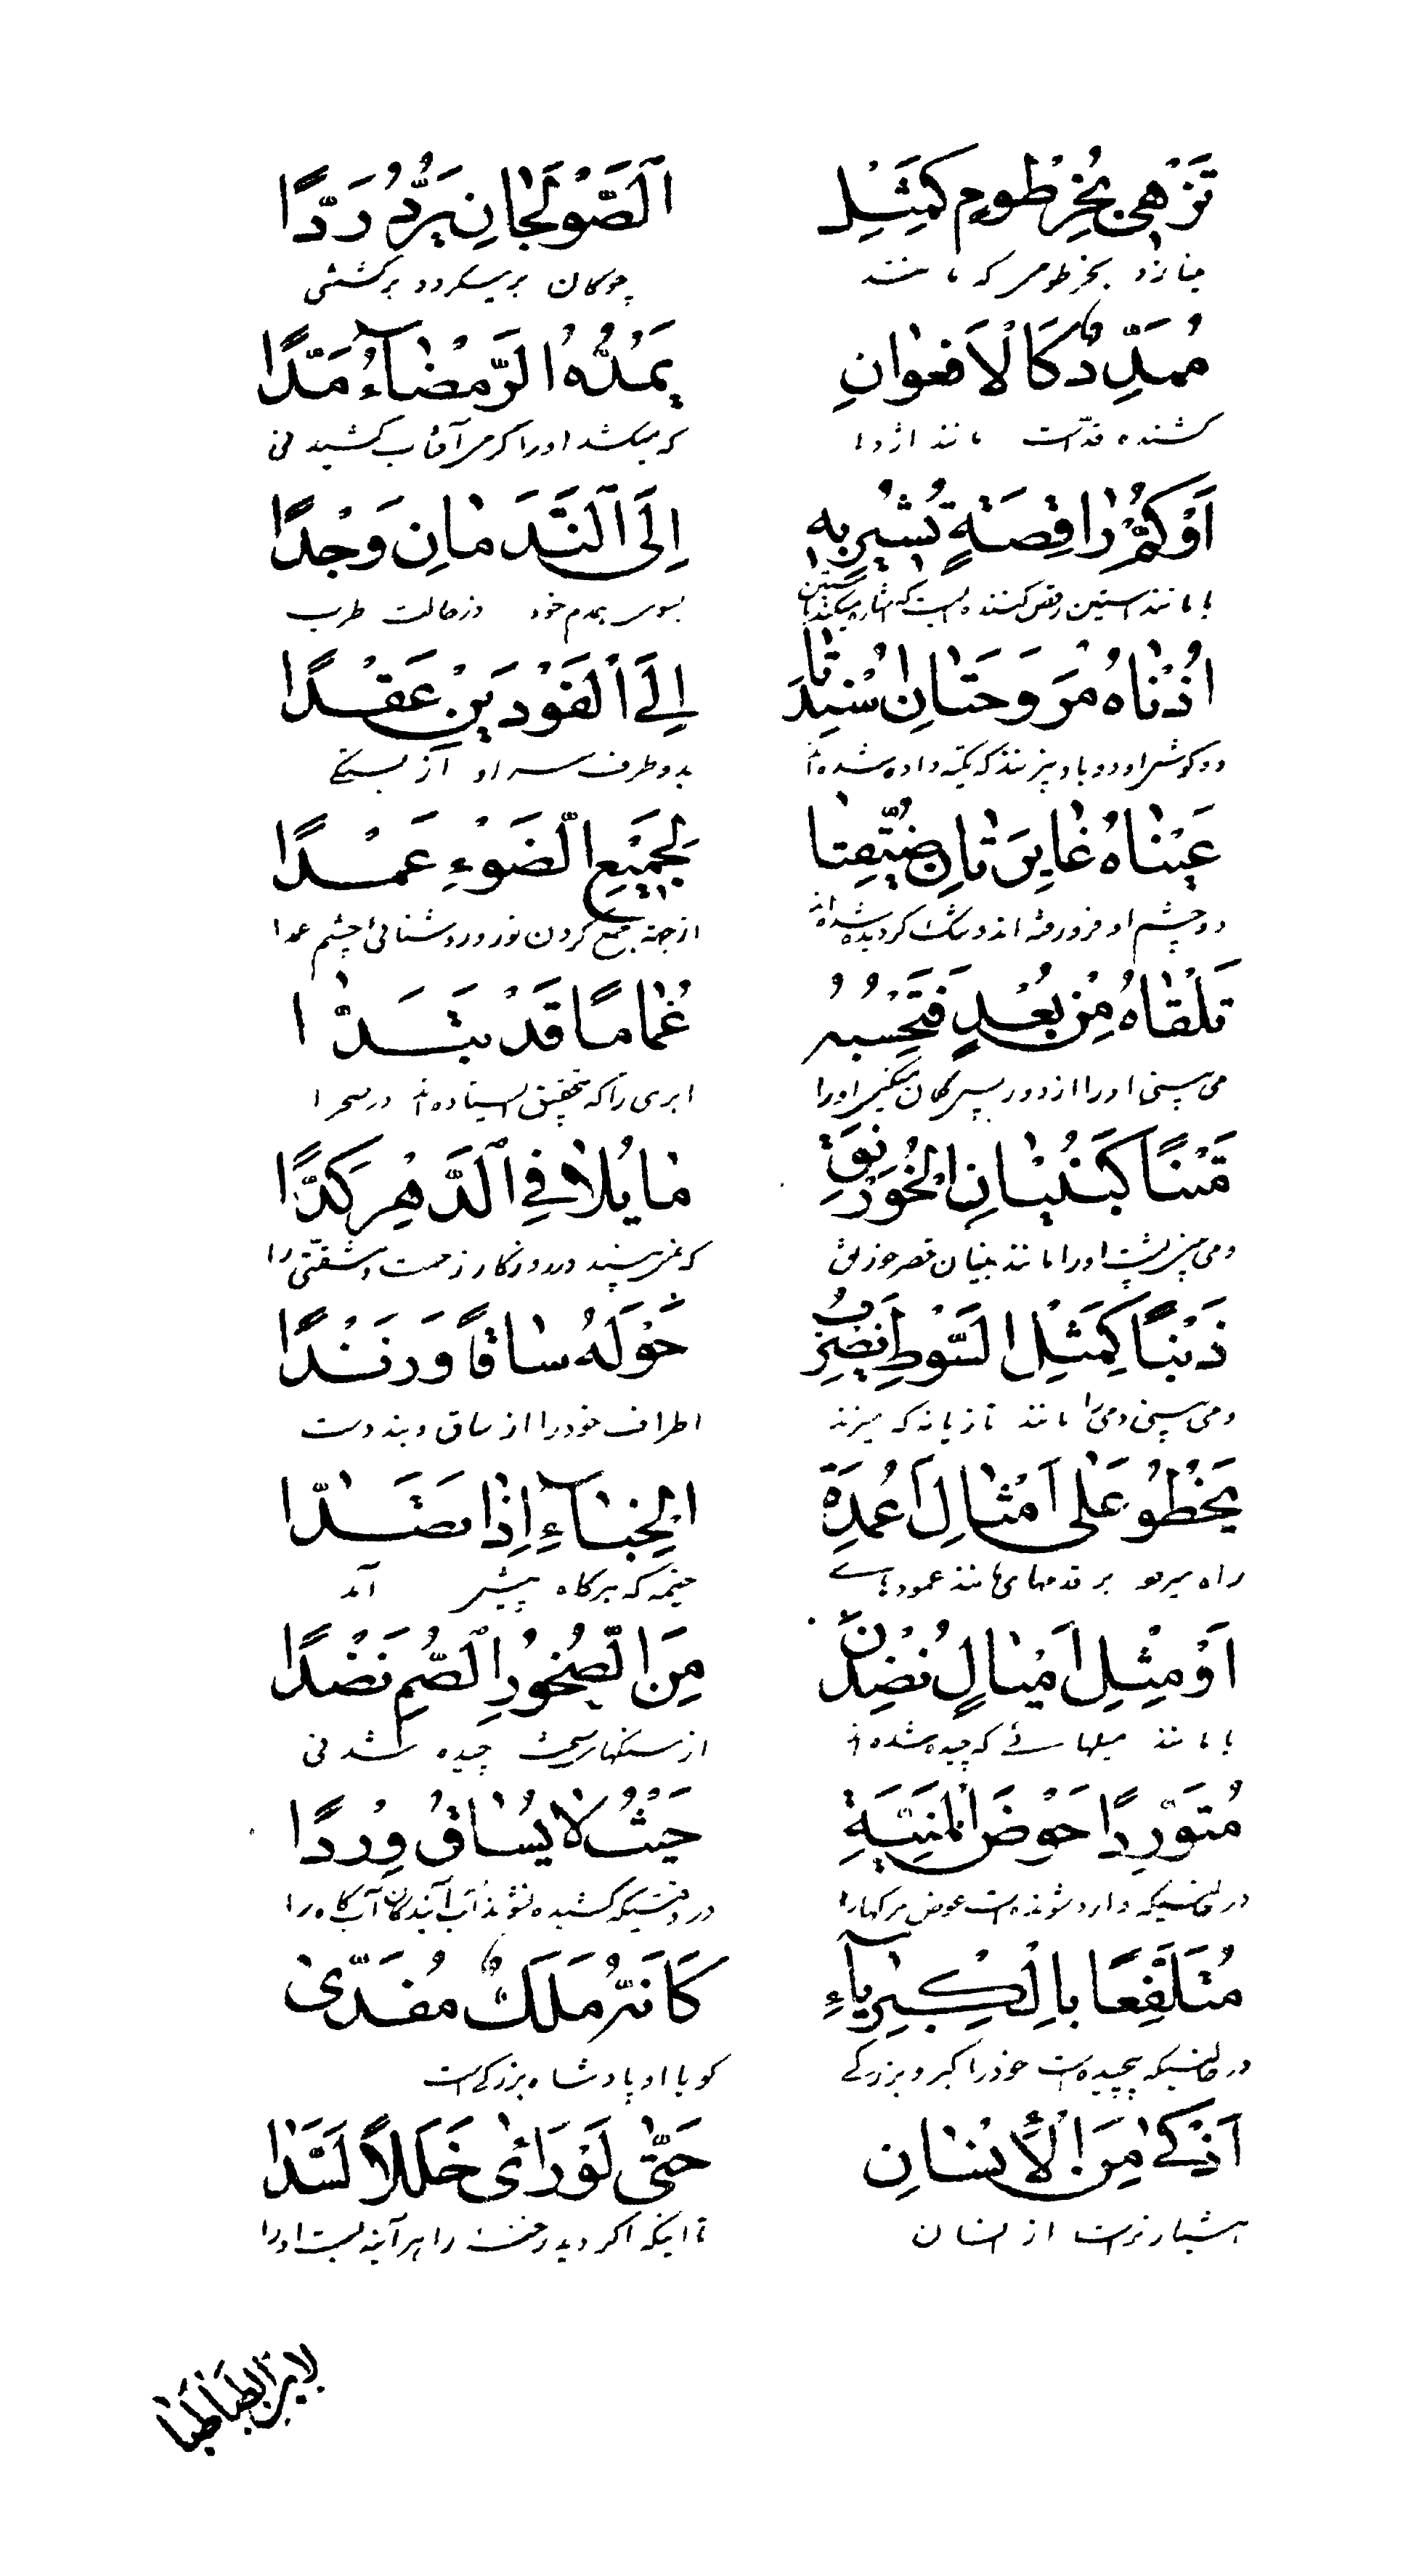 تَزْهِي بِخُرْطُومٍ كَمِثْلِ اَلصَّوْلَجانِ يَرُدُّ رَدًّا
مينازد بخرطومى كه مانند چوكان برميكردد بركشتنى
مُمَدِّدٌ كَالْاَفْعُوانِ يَمُدُّهُ الرَّمْضآءُ مَدًّا
كشنده قدّاست مانند اژدها كه ميكشد اورا كرمى آفتاب كشيدنى
اَوْ كُمِّ راقِصَةٍ تُشيرُ بِهِ اِلَى النَّدَمانِ وَجْدًا
يا مانند استين رقص كننده است كه اشاره ميكند بآستين بسوى همدم خود در حالت طرب
اُذْناهُ مَرْوَحَتانِ اُسْنِدَتا اِلَى الْفَوْدَيْنِ عَقْدًا
دو كوش او دو بادبيزنند كه تكيه داده شده‌اند بدو طرف سر او از بستكى
عَيْناهُ غايِرَتانِ ضُيِّقِتا لِجَمْيعِ الضَّوْءِ عَمْدًا
دو چشم او فرو رفته‌اند و تنك كرديده شده‌اند از جهة جمع كردن نور و روشنائى چشم عمدا
تَلْقاهُ مِنْ بُعْدٍ فَتَحْسِبُهُ غُمامًا قَدْ تَبَدّا
مى بينى اورا از دور پس كمان ميكنى اورا ابرى را كه بتحقيق ايستاده‌اند در صحرا
مَتْنًا كَبُنْيانِ الْخُوَرْنَقِ مايُلاٰ فِي الدَّهْرِ كَدًّا
و مى بينى پشت اورا مانند بنيان قصر خورنق كه نمى بيند در روزكار زحمت و مشقّتى را
ذَنْبًا كَمَثِلِ السَّوْطِ يَضِرْبُ حَوْلَهُ ساقاً وَزَنْدًا
و مى بينى دمى را مانند تازيانه كه ميزند اطراف خودرا از ساق و بند دست
يَخْطُو عَلى اَمْثالِ اَعْمِدَةِ الْخِبآءِ اِذا تَصَدّا
راه ميرود بر قدمهاى مانند عمودهاى خيمه كه هركاه پيش آمد
اَوْ مِثْلِ اَمْيالٍ نُضِدْنَ مِنَ الصُّخُورِ الصُّمِ نَضْدًا
يا مانند ميلهائى كه چيده شده‌اند از سنكهاى سخت چيده شدنى
مُتَوَرِّدًا حَوْضَ الْمَنِيَّةِ حَيْثُ لا يُساقُ وِرْدًا
در حالتيكه وارد شونده است حوض مركها را در وقتيكه كشيده نشوند آب آيندكان آب كاه را
مُتَلَفِّعًا بِالْكِبْرِيآءِ كَاَنَّهُ مَلَكٌ مُفَدّىٰ
در حالتيكه پيچيده است خودرا كبر و بزركى كويا او پادشاه بزركى است
اَذْكىٰ مِنَ الْأِنْسانِ حَتّى لَوْ رَأى خَلَلاً لَسَدّا
هشيارتر است از انسان تا اينكه اكر ديد رخنه را هر آينه بست اورا
لابن الطباطبا